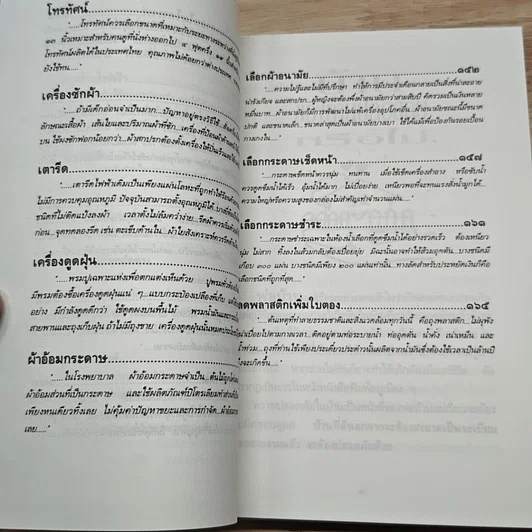 โทรทัศน์
"....โทรทัศน์ควรเลือกขนาดที่เหมาะกับระยะห่าง
๑๓ นิ้วเหมาะสำหรับคนดูที่นั่งห่างออกไป ๔ ฟุตครึ่ง
โทรทัศน์ผลิตได้ในประเทศไทย คุณภาพไม่ด้อยกว่าต่างประเทศ
ยังใช้ทน...."
เครื่องซักผ้า
"....ถ้ามีเด็กอ่อนจำเป็นมาก...ปัญหาอยู่ตรงวิธีใช้
ลักษณะเสื้อผ้า เส้นใยและปริมาณผ้าที่ซัก...เครื่องที่ป้อนผ้า
บน ใช้ผงซักฟอกน้อยกว่า...ผ้าสกปรกต้องตั้งเครื่องให้ปั่น
เตารีด
"....เตารีดไฟฟ้าเดิมเป็นเพียงแผ่นโลหะที่ถูกทำให้ร้อน
ไม่มีการควบคุมอุณหภูมิ ปัจจุบันสามารถตั้งอุณหภูมิได้
ชนิดที่ไม่ติดแป้งลงผ้า เวลาตั้งไม่ล้มคว่ำง่าย
ก่อน...จุดทดลองรีด เช่น ตะเข็บด้านใน...ผ้าใยสังเคราะห์ควรรีด
เครื่องดูดฝุ่น
"....พรมปูเฉพาะแห่งเพื่อตกแต่งเห็นด้วย ปูพรมทั้ง
มีพรมต้องซื้อเครื่องดูดฝุ่นแน่ ๆ...แบบกระป๋องเปลืองที่เก็บ
อย่าง มีกำลังดูดดีกว่า ใช้ดูดผงบนพื้นไม้ พรมน้ำมัน
สายพานและถุงเก็บฝุ่น ถ้าไม่มีถุงขาย เครื่องดูดฝุ่นนั้นหมด
ผ้าอ้อมกระดาษ
"....ในโรงพยาบาล ผ้าอ้อมกระดาษจำเป็น...
ผ้าอ้อมส่วนที่เป็นกระดาษ และใช้ผลิตภัณฑ์ปิโตรเลียมทำส่วนที่
เพียงหนเดียวทิ้งเลย ไม่คุ้มค่าปัญหาขยะและการกำจัด...ผ้าอ้อม
เลย...."
เลือกผ้าอนามัย ๑๕๒
"....ความไม่รู้และไม่มีที่ปรึกษา ทำให้การมีประจำเดือนกลายเป็นสิ่งที่น่าละอาย
น่ารังเกียจ และสกปรก...ผู้หญิงจะต้องพึ่งผ้าอนามัยกว่าสามสิบปี คิดรวมเป็นเงินหลาย
หมื่นบาท...ผ้าอนามัยก็มีการพัฒนาไม่แพ้เครื่องอุปโภคอื่น...ผ้าอนามัยขณะนี้มีขนาด
ปกติ และเล็กจิ๋ว...ขนาดล่าสุดเป็นผ้าอนามัยบางเบา ใช้ได้แม้เพื่อป้องกันรอยเปื้อน
กางเกงใน...."
เลือกกระดาษเช็ดหน้า ๑๕๗
"....กระดาษเช็ดหน้าควรนุ่ม ทนทาน เมื่อใช้เช็ดเครื่องสำอาง หรือซับน้ำ
ควรดูดซึมน้ำได้เร็ว อุ้มน้ำได้มาก ไม่เปื่อยง่าย เหนียวพอที่จะทนแรงสั่งน้ำมูกได้...
ความใหญ่หรือความสูงของกล่องไม่สำคัญเท่าจำนวนแผ่น...."
เลือกกระดาษชำระ ๑๖๑
"....กระดาษชำระเฉพาะในห้องน้ำเลือกที่ดูดซึมน้ำได้อย่างรวดเร็ว ต้องเหนียว
นุ่ม ไม่สาก ทิ้งลงในส้วมกลับต้องเปื่อยยุ่ย มิฉะนั้นอาจทำให้ส้วมอุดตัน...บางชนิดมี
๓๐๐ แผ่น บางชนิดมีเพียง ๒๐๐ แผ่นเท่านั้น...ทางลัดสำหรับประหยัดเงินก็คือ
เลือกชนิดที่ถูกที่สุด...."
ลดพลาสติกเพิ่มใบตอง ๑๖๕
"....ต้นเหตุที่ทำลายธรรมชาติและสิ่งแวดล้อมทุกวันนี้ คือถุงพลาสติก...ไม่ผุพัง
เน่าเปื่อยไปตามกาลเวลา...ติดอยู่ตามท่อระบายน้ำ ท่ออุดตัน น้ำขัง น้ำเน่าเหม็น และ
น้ำท่วม...ถุงที่ท่านใช้เพียงประเดี๋ยวประด๋าวนั้นผลิตจากน้ำมันซึ่งต้องใช้เวลาเป็นล้านปี
จะเกิดขึ้น...."